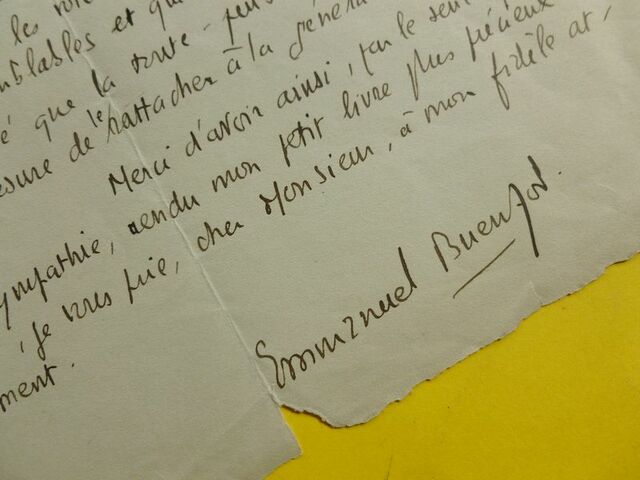 les
mblables et qu
é que la toute-
esure de le rattacher à la généra
Merci d'avoir ainsi, par le seul
sympathie, rendu mon petit livre plus précieux
, je vous prie, cher Monsieur, à mon fidèle at,
ment.
Emmanuel Buenzod.